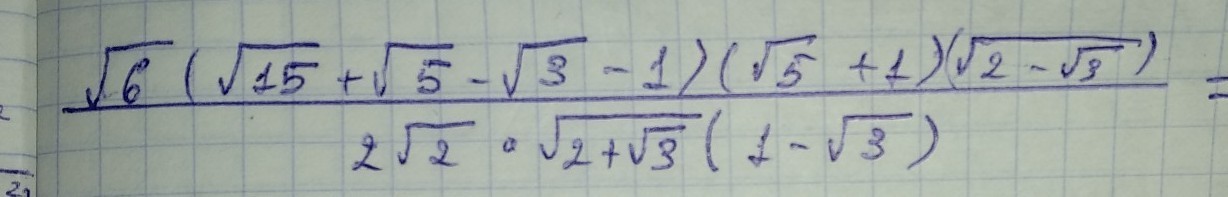 √6 (√15 + √5 - √3 - 1)(√5 + 1)(√(2 - √3)) =
2√2 · √(2+√3) (1 - √3)